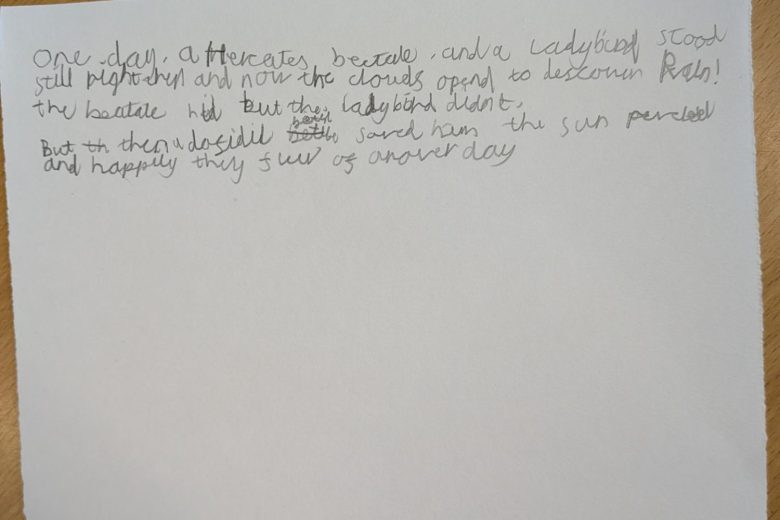 One day. a Hercates beetale. and a Ladybird stood
still right then and now the clouds opend to descover Rain!
the beatale hid but the ladybird didnt.
But then a dosidil beetil saved ham the sun
and happily they fluw of anover day